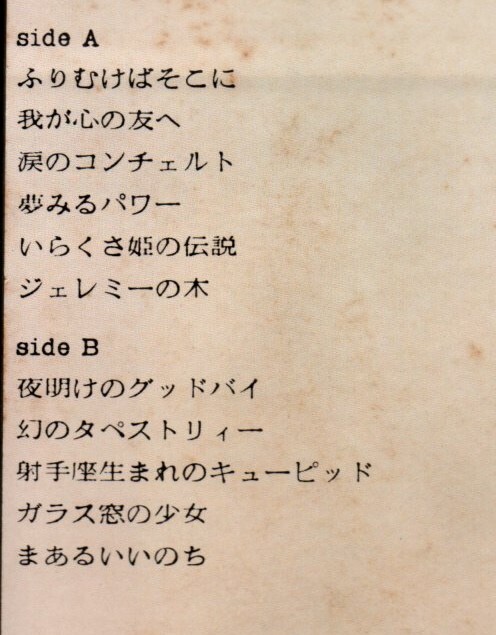 side A
ふりむけばそこに
我が心の友へ
涙のコンチェルト
夢みるパワー
いらくさ姫の伝説
ジェレミーの木
side B
夜明けのグッドバイ
幻のタペストリィー
射手座生まれのキューピッド
ガラス窓の少女
まあるいいのち